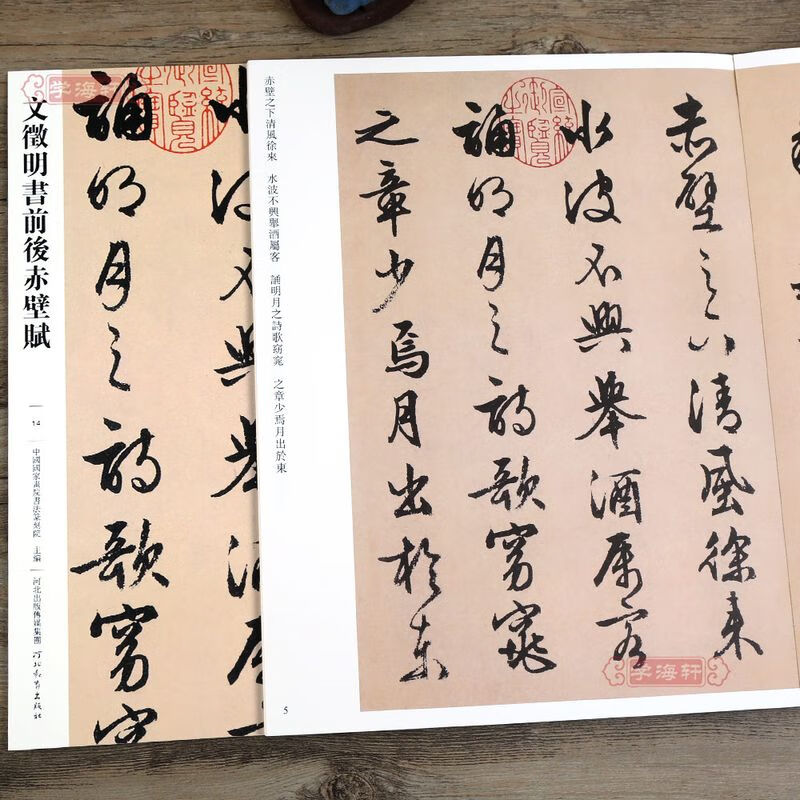 学海轩
文徵明書前後赤壁賦
14
中國國家畫院書法篆刻院 主編
河北出版傳媒集團 河北教育出版社
水波不興舉酒屬
誦明月之詩歌窈窕
赤壁之下清風徐來 水波不興舉酒屬客 誦明月之詩歌窈窕 之章少焉月出於東
赤壁之下清風徐來
水波不興舉酒屬客
誦明月之詩歌窈窕
之章少焉月出於東
宣統御覽之寶
5
学海轩